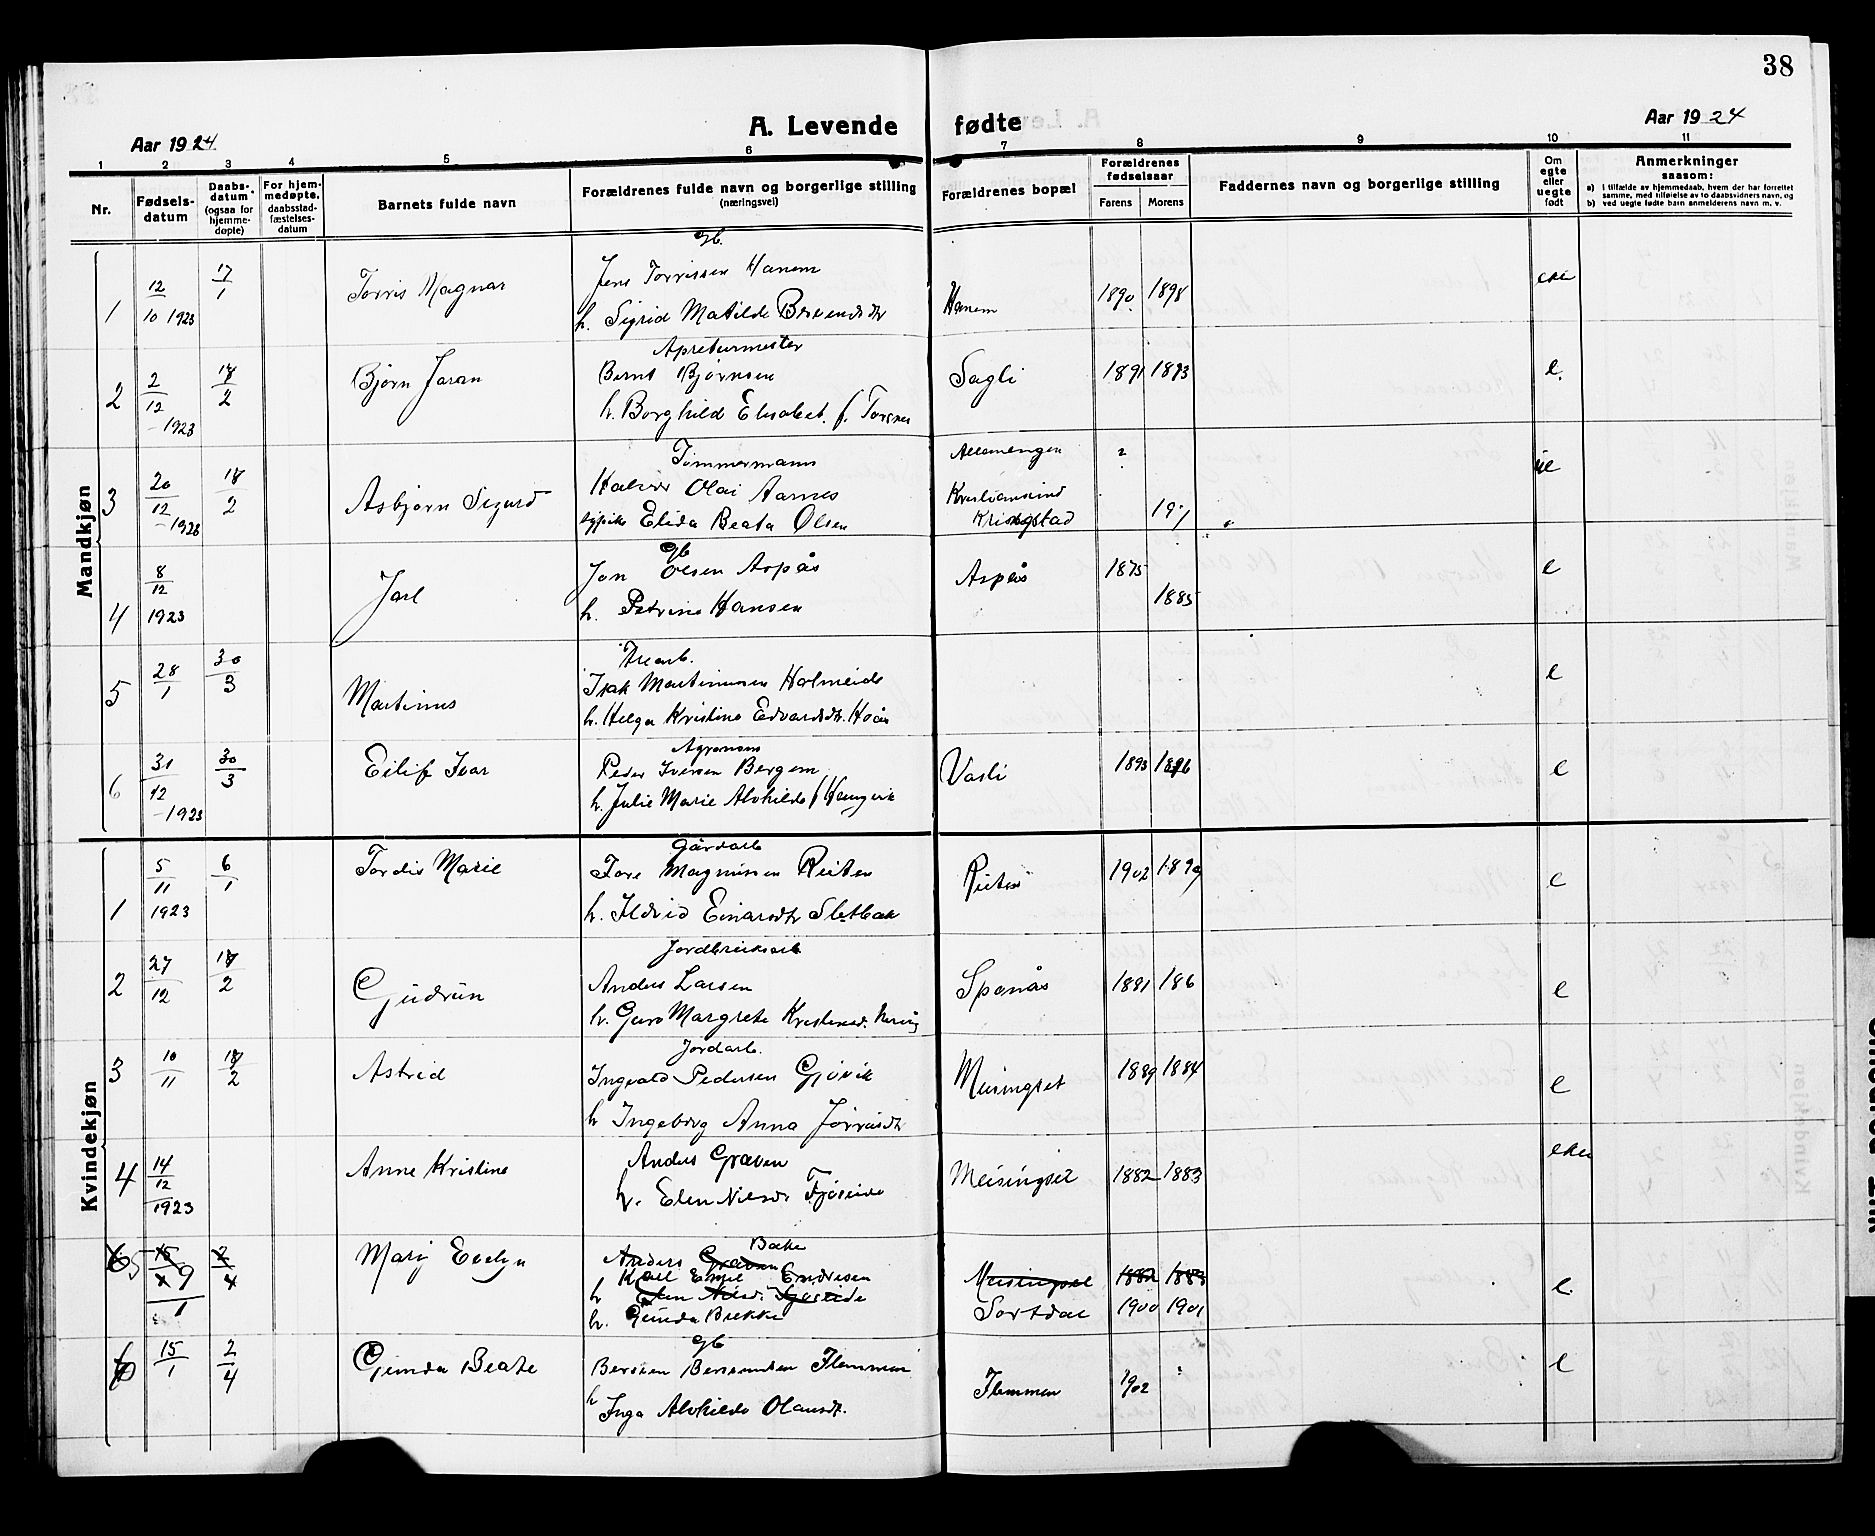 38
A. Levende fødte
Aar 1924
Aar 1924
1 2 3 4 5 6 7 8 9 10 11
Nr.
Fødsels-
datum
Daabs-
datum
(ogsaa for
hjemme-
døpte)
For hjem-
medøpte,
daabsstad-
fæstelses-
datum
Barnets fulde navn
Forældrenes fulde navn og borgerlige stilling
(næringsvei)
Forældrenes bopæl
Forældrenes
fødselsaar
Farens Morens
Faddernes navn og borgerlige stilling
Om
egte
eller
uegte
født
Anmerkninger
saasom:
a) i tilfælde av hjemmedaab, hvem der har forrettet
samme, med tilføielse av to daabsvidners navn, og
b) ved uegte fødte barn anmelderens navn m. v.
Mandkjøn
gb.
1 12/10 1923 17/1 Torris Magnar Jens Torrissen Hanem Hanem 1890 1898
h. Sigrid Matilde
Apreturmester
2 2/12 -1923 18/2 Bjørn Jaran Bernt Bjørnsen Sagli 1891 1893 e.
h. Borghild Elisabet f. Torsnes
Tømmermann
3 20/12 -1923 18/2 Asbjørn Sigurd Halvor Olai Aarnes Kristiansund ue
Elida Beata Olsen Kringstad
gb
4 8/12 1923 Jarl Jon Olsen Aspås Aspås 1875 e
h. Petrine Hansen 1885
5 28/1 30/3 Martinus Isak Martinusen Holmeide e
h. Helga Kristine Edvardsdtr. Hoås
Agronom
6 31/12 -1923 30/3 Eilif Ivar Peder Iversen Bergem Vasli 1893 1896 e
h. Julie Marie Alvhilde f
Kvindekjøn
Gårdarb
1 5/11 1923 6/1 Tordis Marie Tore Magnussen Rüten Rüten 1902 1899 e
h. Ildrid Einarsdtr Sletbak
Jordbruksarb
2 27/12 18/2 Gudrun Anders Larsen Spenås 1881 186 e
h. Guro Margrete
Jordarb.
3 10/11 18/2 Astrid Ingvald Pedersen Gjøvik Meisingset 1889 1884 e
h Ingeborg Anna
4 14/12 1923 Anne Kristine Anders Græven Meisingset 1882 1883
h. Elen Nilsdr Fjøseide
5 9/1 Mary Evelyn Anders Græven Bakke
Karl Emil Endresen Meisingset 1882 1883
h Elen Nilsd. Fjøseide Sortdal 1900 1901 e.
h. Gunda Brekke
gb
6 15/1 2/4 Gunda Beate Flemmen Flemmen 1902 e
h Inga Alvhilde Olausdt.